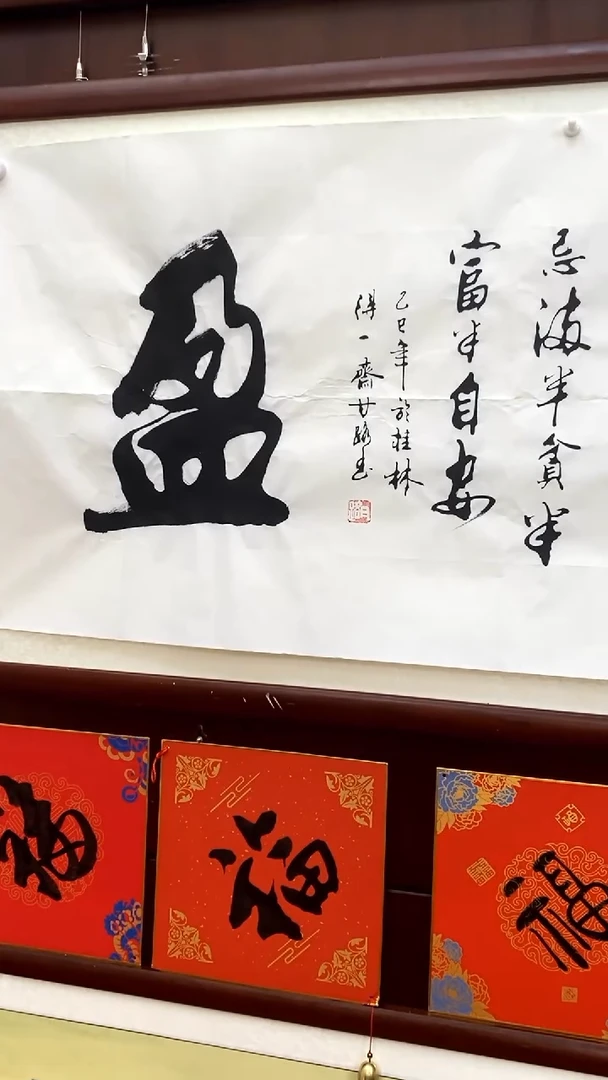 忌满半貧半
富半自安
乙巳年於桂林
得一齋甘
盈
福
福
福